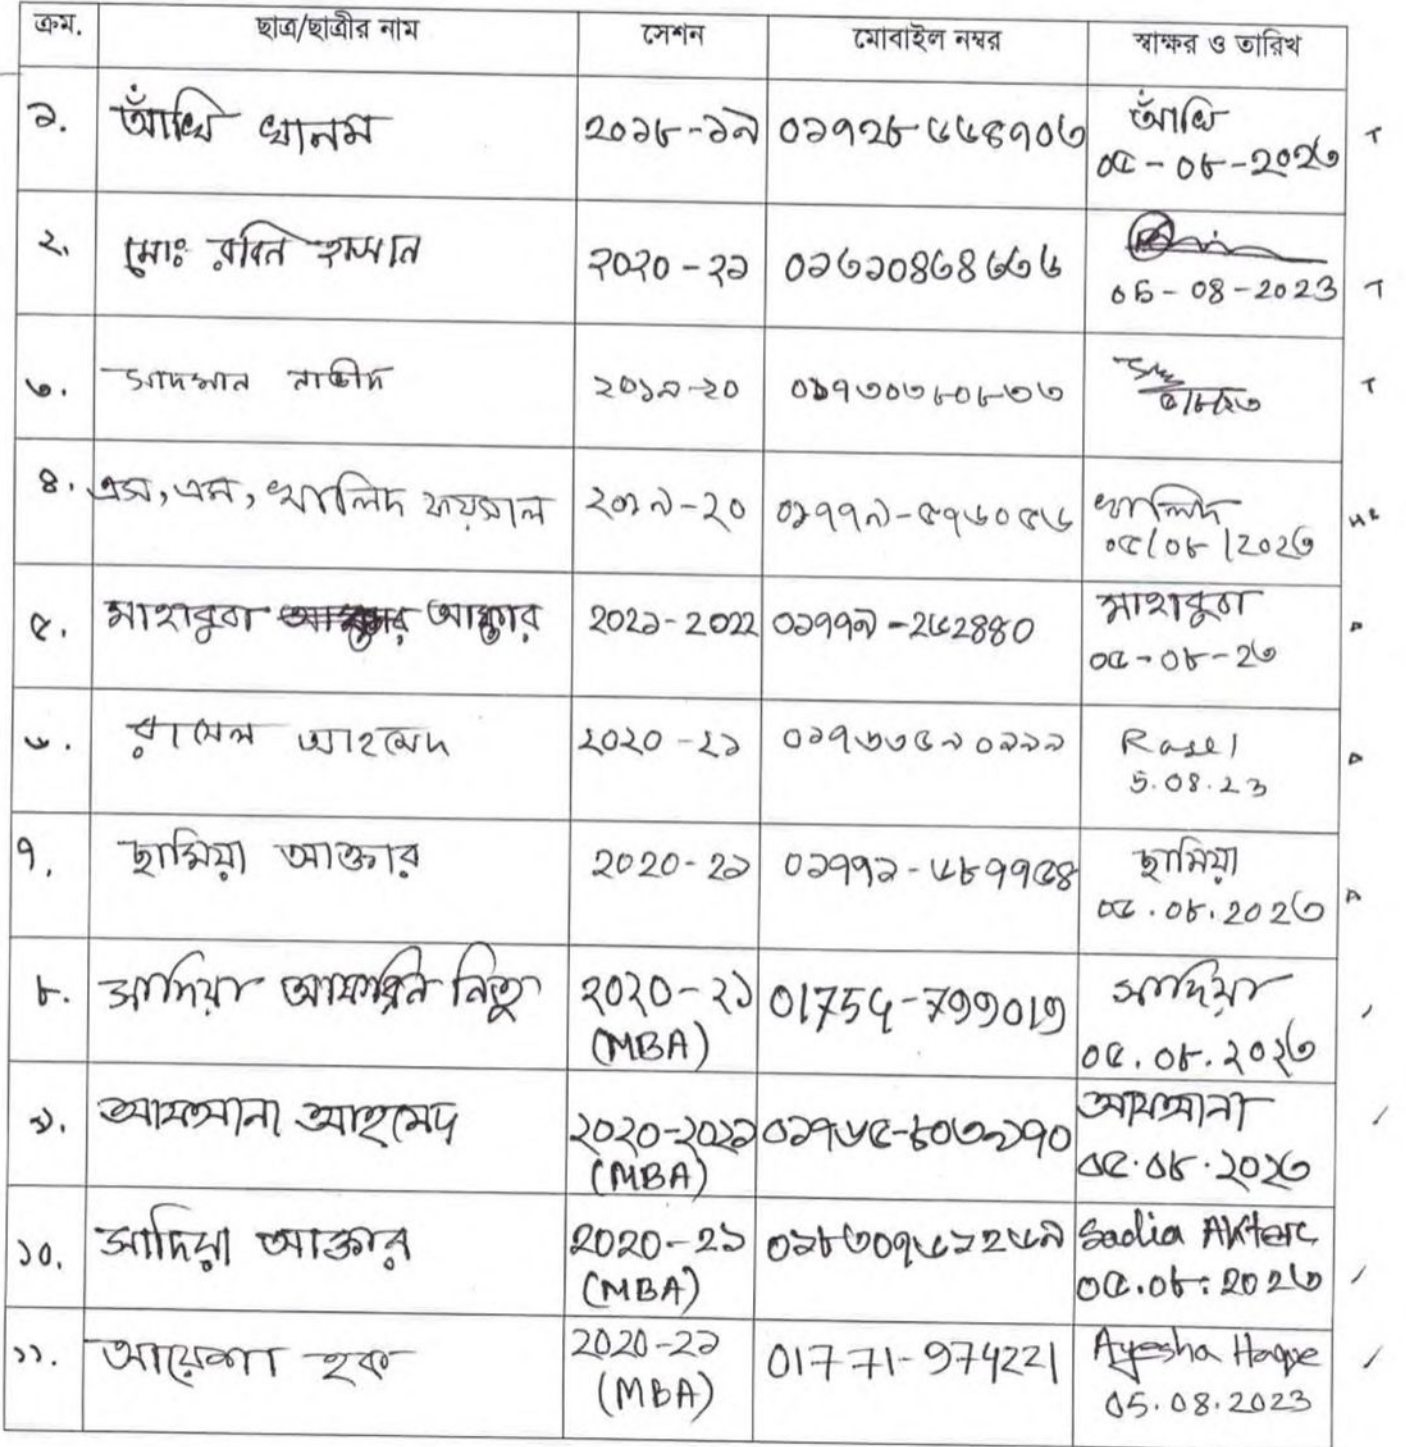 ক্রম. ছাত্র/ছাত্রীর নাম সেশন মোবাইল নম্বর স্বাক্ষর ও তারিখ
১. আঁখি খানম ২০১৮-১৯ ০১৭২৮-৬৬৪৭০৩ আঁখি
০৫-০৮-২০২৩
২. মোঃ রবিন হাসান ২০২০-২১ ০১৬১০৪৬৪৬৬৬
05-08-2023
৩. সাদমান নাভীদ ২০১৯-২০ ০১৭৩০৩৮০৮৩৩
৫/৮/২৩
৪. এস, এম, খালিদ ফয়সাল ২০১৯-২০ ০১৭৭৯-৫৭৬০৫৬ খালিদ
০৫/০৮/২০২৩
৫. মাহাবুবা আক্তার ২০২১-২০২২ ০১৭৭৯-২৬২৪৪০ মাহাবুবা
০৫-০৮-২৩
৬. রাসেল আহমেদ ২০২০-২১ ০১৭৬৩৫৯০১১১ Rasel
5.08.23
৭. ছামিয়া আক্তার ২০২০-২১ ০১৭৭১-৬৮৭৭৫৪ ছামিয়া
০৫.০৮.২০২৩
৮. সাদিয়া আফরিন নিতু ২০২০-২১ সাদিয়া
(MBA) ০৫.০৮.২০২৩
৯. আফসানা আহমেদ ২০২০-২০২১ ০১৭৬৫-৮০৩৯১৭০ আফসানা
(MBA) ০৫.০৮.২০২৩
১০. সাদিয়া আক্তার ২০২০-২১ ০১৮৩০৭৬১২৬৯ Sadia Akter
(MBA) ০৫.০৮.২০২৩
১১. আয়েশা হক ২০২০-২১ 01771-974221 Ayesha Haque
(MBA) 05.08.2023